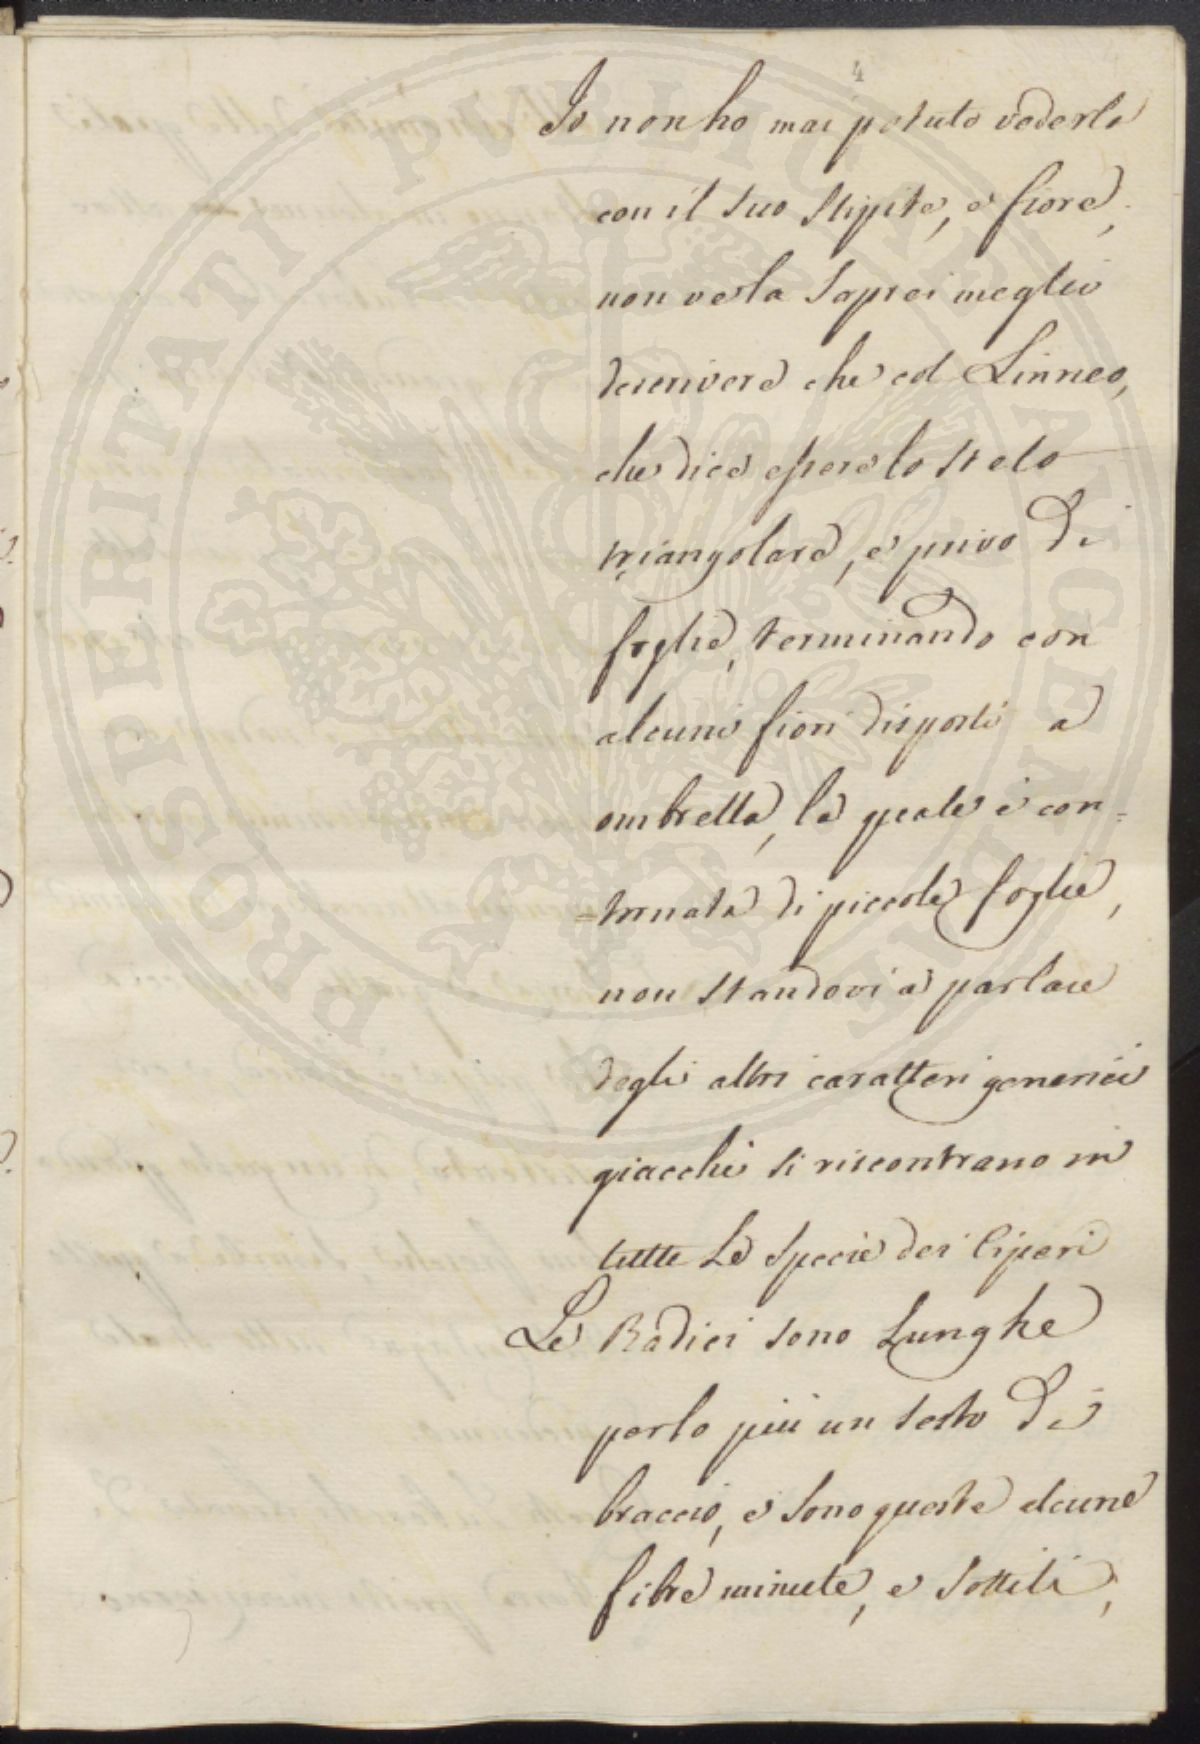 4
Io non ho mai potuto vederla
con il suo stipite, e fiore,
non ve la saprei meglio
descrivere che col Linneo,
che dice essere lo stelo
triangolare, e privo di
foglie, terminando con
alcuni fiori disposti a
ombrella, la quale è con=
=tornata di piccole foglie,
non standovi a parlare
degli altri caratteri generici
giacchè si riscontrano in
tutte le specie dei Ciperi
Le Radici sono Lunghe
perlo più un sesto di
braccio, e sono queste alcune
fibre minute, e sottili,
PROSPERITATI PVBLICAE AVGENDAE